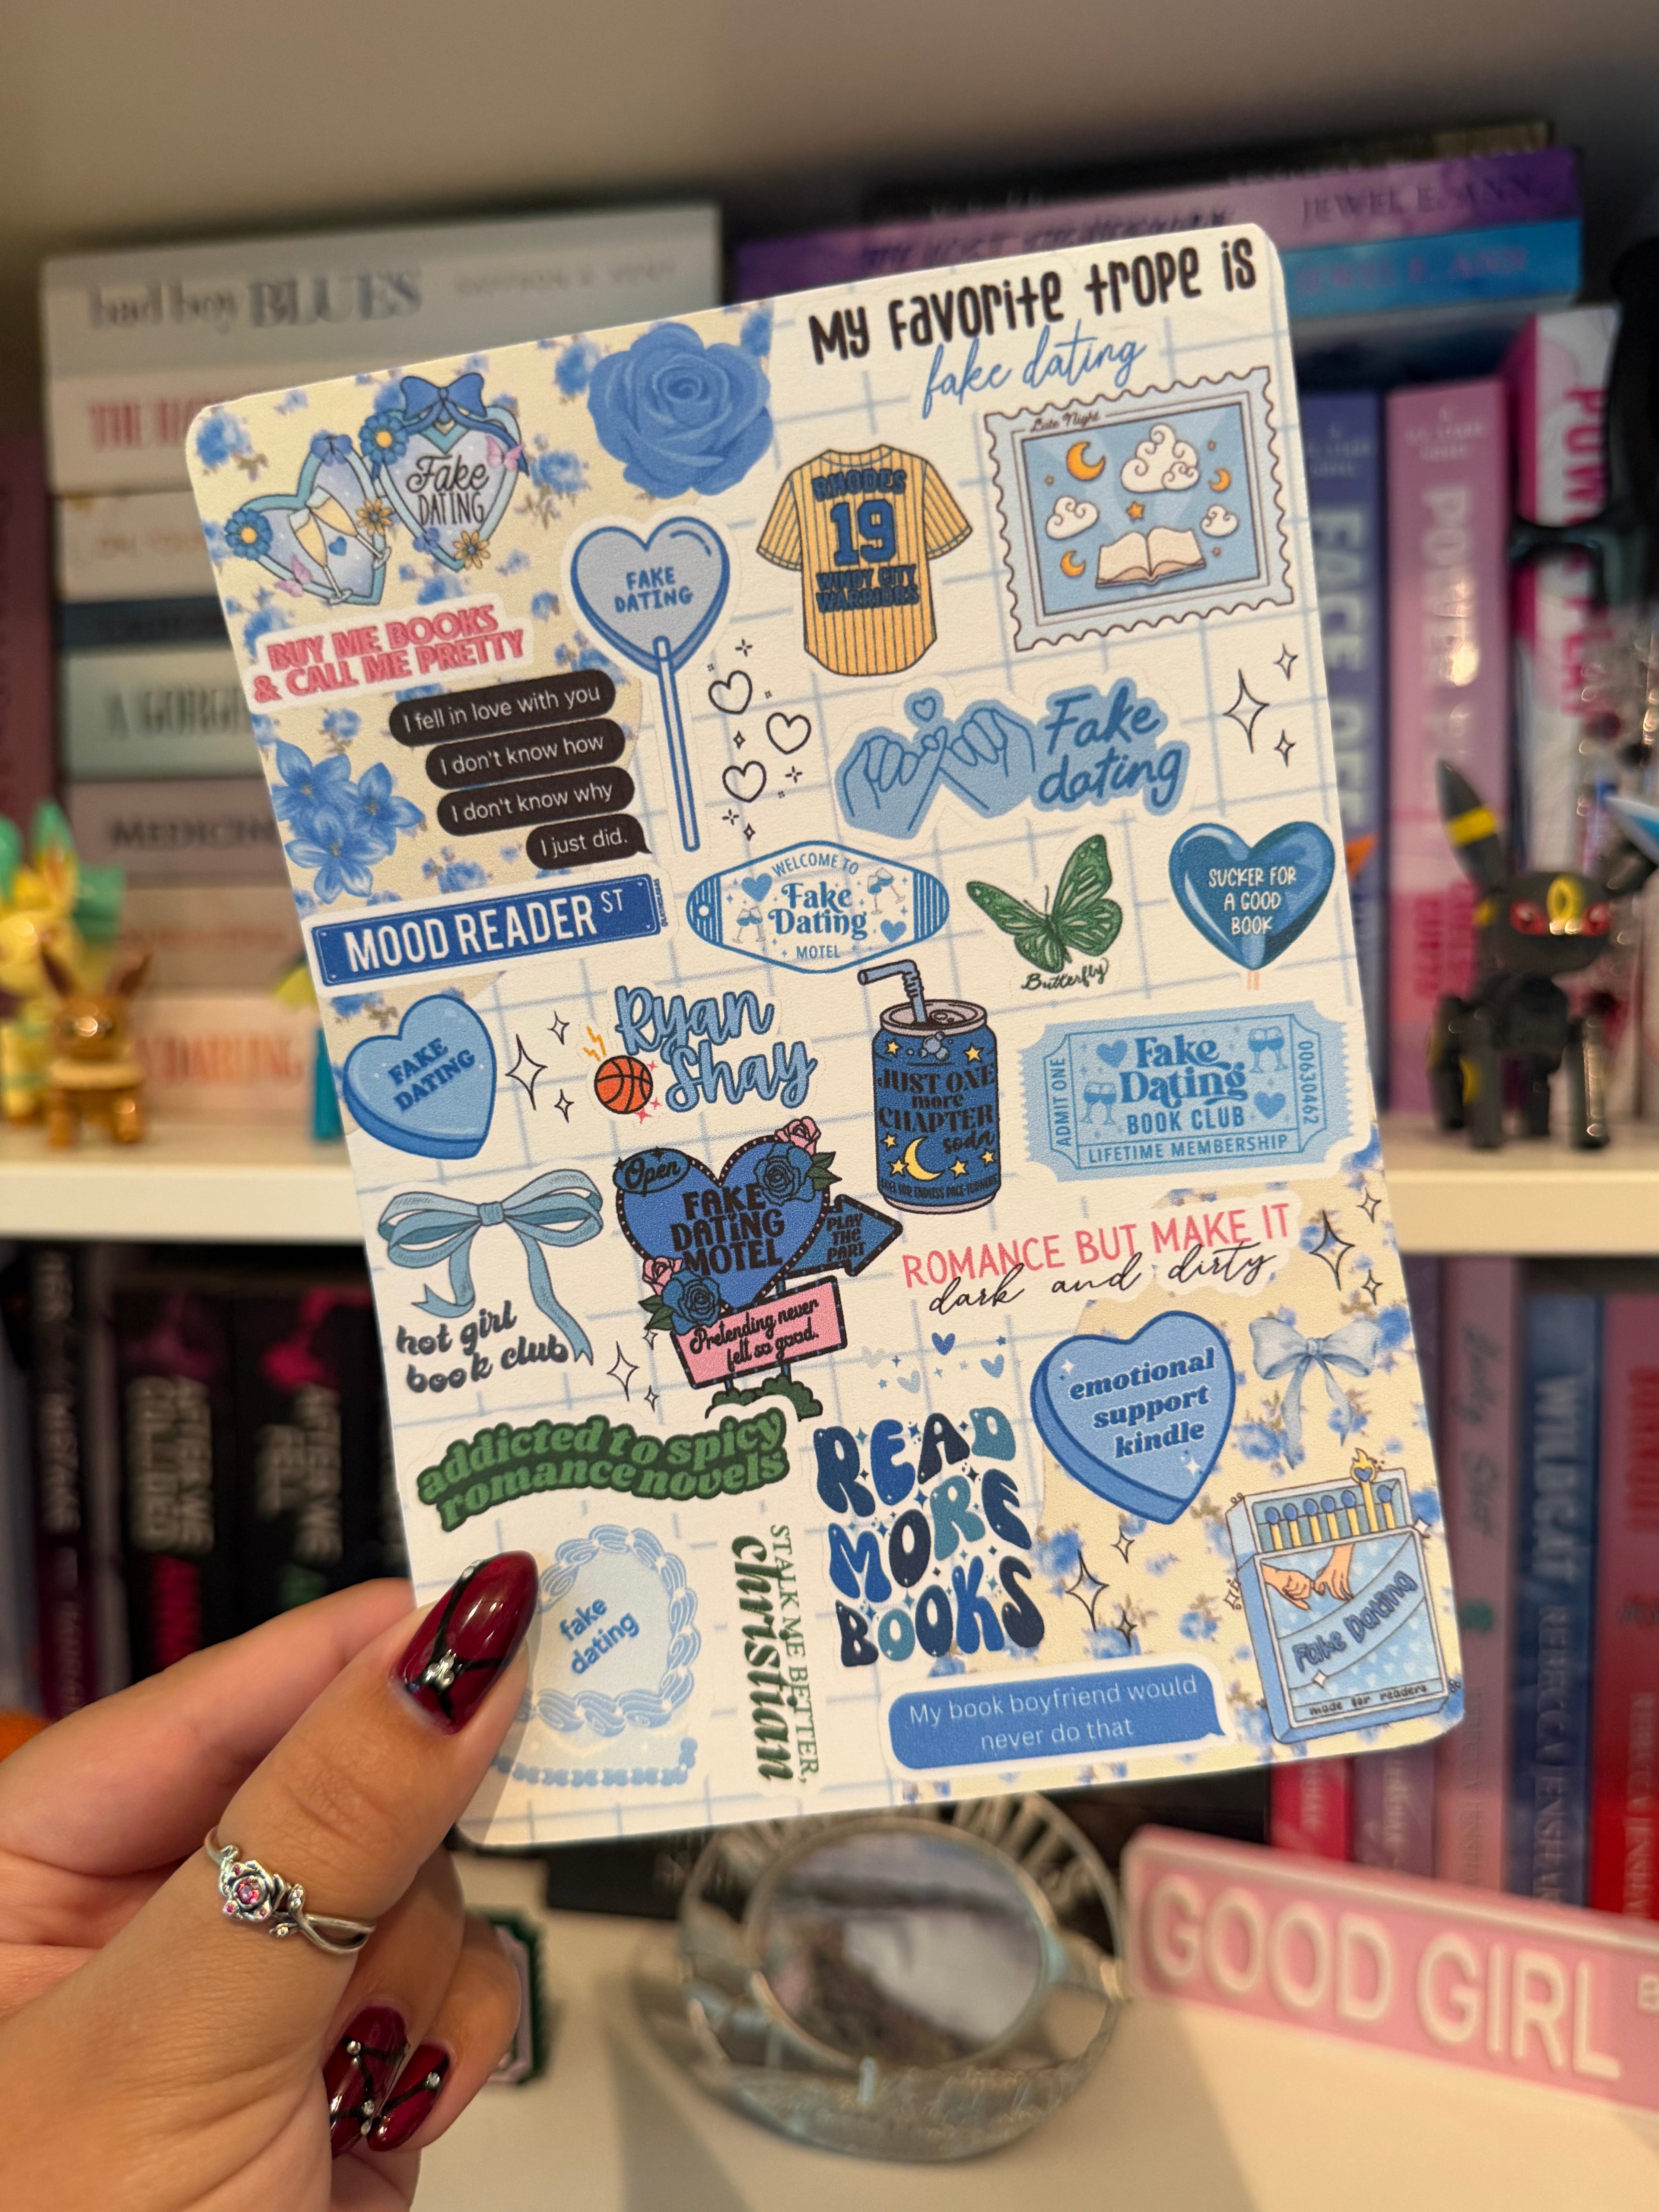 bad boy BLUES
JEWEL E. ANN
JEWEL E. ANN
My Favorite trope is
fake dating
Late Night
Fake
DATING
RHODES
19
WINDY CITY
WARRIORS
FAKE
DATING
BUY ME BOOKS
& CALL ME PRETTY
I fell in love with you
I don't know how
I don't know why
I just did.
Fake
dating
MOOD READER ST
WELCOME TO
Fake
Dating
MOTEL
Butterfly
SUCKER FOR
A GOOD
BOOK
FAKE
DATING
Ryan
Shay
JUST ONE
more
CHAPTER
soda
ADMIT ONE
Fake
Dating
BOOK CLUB
LIFETIME MEMBERSHIP
00630462
Open
FAKE
DATING
MOTEL
PLAY
THE
PART
Pretending never
felt so good.
hot girl
book club
ROMANCE BUT MAKE IT
dark and dirty
addicted to spicy
romance novels
READ
MORE
BOOKS
emotional
support
kindle
fake
dating
STALK ME BETTER,
christian
My book boyfriend would
never do that
Fake Dating
made for readers
MEDICINE
DARLING
FACE OFF
POWER
WILDCAT
REBECCA JENSHAK
GOOD GIRL